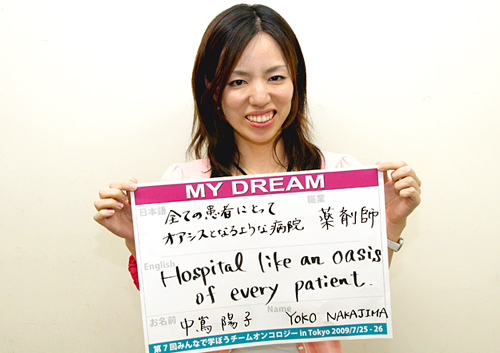 MY DREAM
日本語
職業
全ての患者にとって
オアシスとなるような病院
薬剤師
English
Hospital like an oasis
of every patient.
お名前
中嶌 陽子
Name
YOKO NAKAJIMA
第7回みんなで学ぼうチームオンコロジー in Tokyo 2009/7/25 - 26